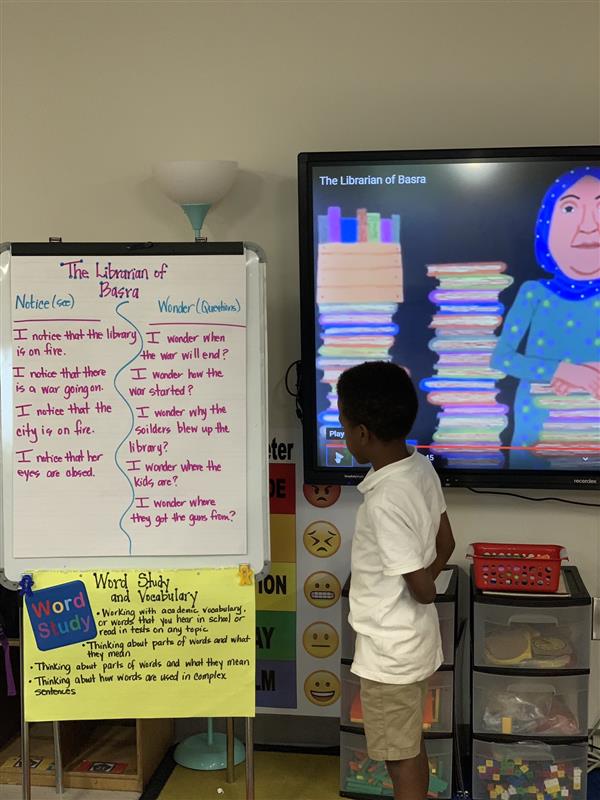 The Librarian of
Basra
Notice (see)
I notice that the library
is on fire.
I notice that there
is a war going on.
I notice that the
city is on fire.
I notice that her
eyes are closed.
Wonder (Questions)
I wonder when
the war will end?
I wonder how the
war started?
I wonder why the
soilders blew up the
library?
I wonder where the
kids are?
I wonder where
they got the guns from?
Word Study
and Vocabulary
Word
Study
• Working with academic vocabulary,
or words that you hear in school or
read in tests on any topic
• Thinking about parts of words and what
they mean
• Thinking about parts of words and what they mean
• Thinking about how words are used in complex
sentences
The Librarian of Basra
Play
15
recordex
eter
DE
ION
AY
LM